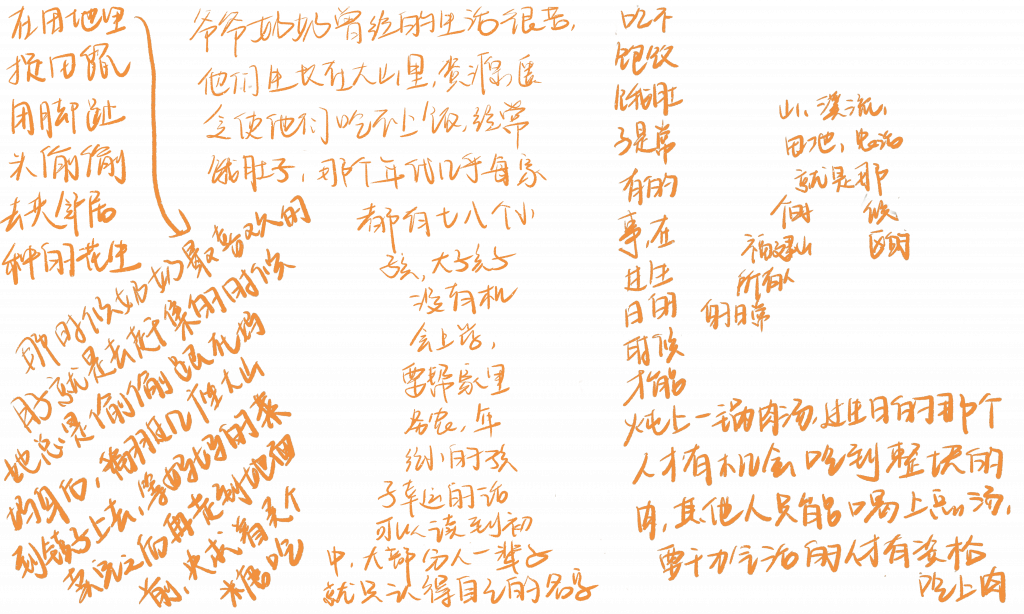 在田地里
挖田鼠
用脚趾
头偷偷
去夹邻居
种的花生
那时候奶奶最喜欢的
日子就是去赶集的时候
她总是偷偷跟在妈
妈身后，翻过几座大山
到镇子上去，等妈妈的菜
卖完之后再走到她面
前，央求着买个
米糖吃
爷爷奶奶曾经的生活很苦，
他们生长在大山里，资源匮
乏使他们吃不上饭，经常
饿肚子，那个年代几乎每家
都有七八个小
孩，大孩子
没有机
会上学，
要帮家里
务农，年
纪小的孩
子幸运的话
可以读到初
中，大部分人一辈子
就只认得自己的名字
吃不
饱饭
饿肚
子是常
有的
事，在
过生
日的
时候
才能
炖上一锅肉汤，过生日的那个
人才有机会吃到整块的
肉，其他人只能喝上点汤，
要干力气活的人才有资格
吃上肉
山、溪流、
田地，农活
就是那
个时 候
福建山 区的
所有人
的日常